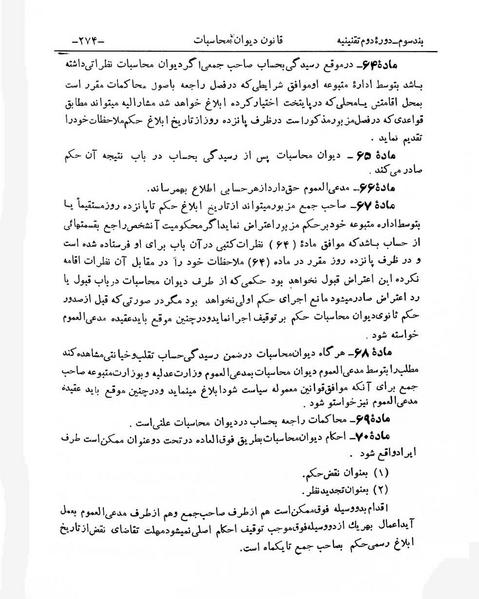 بند سوم ــ دورهٔ دوم تقنینیه قانون دیوان محاسبات ‎-۲۷۴-
مادهٔ ۶۴ــ در موقع رسیدگی بحساب صاحب جمعی اگر دیوان محاسبات نظراتی داشته
باشد بتوسط ادارهٔ متبوعه او موافق شرایطی که در فصل راجعه باصول محاکمات مقرر است
بمحل اقامتش یا محلی که در پایتخت اختیار کرده ابلاغ خواهد شد مشارالیه میتواند مطابق
قواعدی که در فصل مزبور مذکور است در ظرف پانزده روز از تاریخ ابلاغ حکم ملاحظات خود را
تقدیم نماید .
مادهٔ ۶۵ــ دیوان محاسبات پس از رسیدگی بحساب در باب نتیجه آن حکم
صادر می کند .
مادهٔ ۶۶ــ مدعی العموم حق دارد از هر حسابی اطلاع بهمرساند.
مادهٔ ۶۷ــ صاحب جمع مزبور میتواند از تاریخ ابلاغ حکم تا پانزده روز مستقیماً یا
بتوسط اداره متبوعه خود بر حکم مزبور اعتراض نماید اگر محکومیت آنشخص راجع بقسمتهائی
از حساب باشد که موافق مادهٔ (۶۴) نظرات کتبی در آن باب برای او فرستاده شده است
و در ظرف پانزده روز مقرر در ماده (۶۴) ملاحظات خود را در مقابل آن نظرات اقامه
نکرده این اعتراض قبول نخواهد بود حکمی که از طرف دیوان محاسبات در باب قبول یا
رد اعتراض صادر میشود مانع اجرای حکم اولی نخواهد بود مگر در صورتی که قبل از صدور
حکم ثانوی دیوان محاسبات حکم بر توقیف اجرا نماید و در چنین موقع باید عقیده مدعی العموم
خواسته شود .
مادهٔ ۶۸ــ هر گاه دیوان محاسبات در ضمن رسیدگی حساب تقلب و خیانتی مشاهده کند
مطلب را بتوسط مدعی العموم دیوان محاسبات بمدعی العموم وزارت عدلیه و بوزارت متبوعه صاحب
جمع برای آنکه موافق قوانین معموله سیاست شود ابلاغ مینماید و در چنین موقع باید عقیدهٔ
مدعی العموم نیز خواسته شود .
مادهٔ ۶۹ــ محاکمات راجعه بحساب در دیوان محاسبات علنی است .
مادهٔ ۷۰ــ احکام دیوان محاسبات بطریق فوق العاده در تحت دو عنوان ممکن است طرف
ایراد واقع شود .
(۱) بعنوان نقض حکم.
(۲) بعنوان تجدید نظر.
اقدام بدو وسیله فوق ممکن است هم از طرف صاحب جمع و هم از طرف مدعی العموم بعمل
آید اعمال بهر یك از دو وسیله فوق موجب توقیف احکام اصلی نمیشود مهلت تقاضای نقض از تاریخ
ابلاغ رسمی حکم بصاحب جمع تا یکماه است.